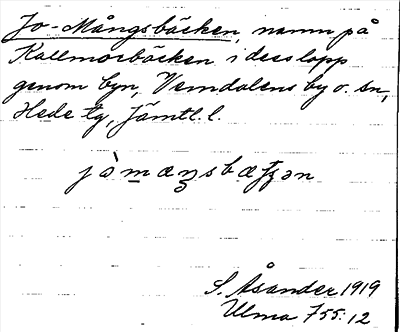 Jo-Mångsbäcken, namn på
Kallmorbäcken i dess lopp
genom byn, Vemdalens by o. sn,
Hede tg, Jämtl. l.
S. Åsander 1919
Ulma 755:12